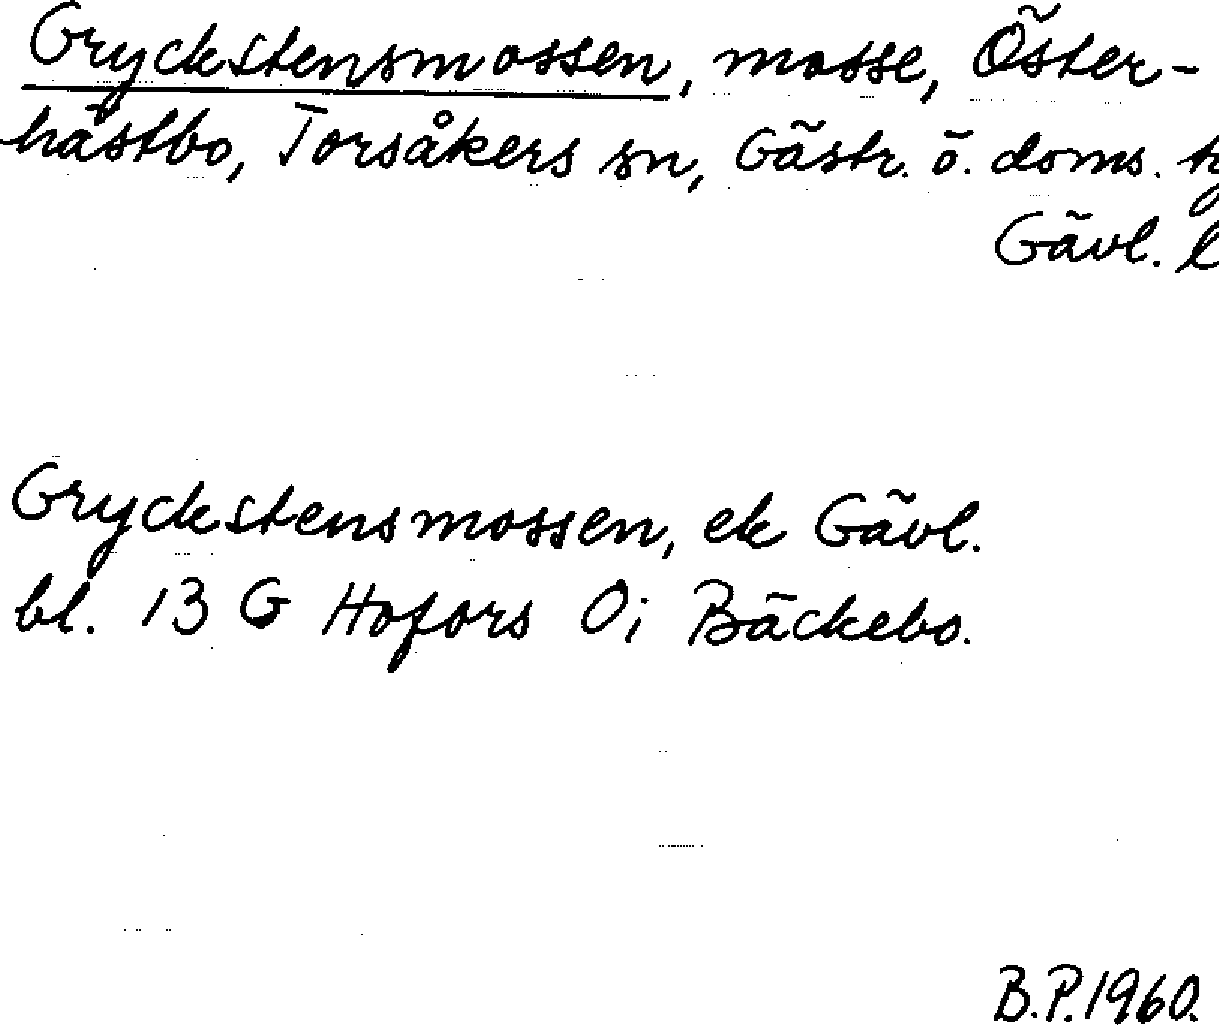 Gryckstensmossen, mosse, Öster-
hästbo, Torsåkers sn, Gästr. ö. doms.
Gävl. l
Gryckstensmossen, ek Gävl.
bl. 13 G Hofors Oi Bäckebo.
B.P. 1960.